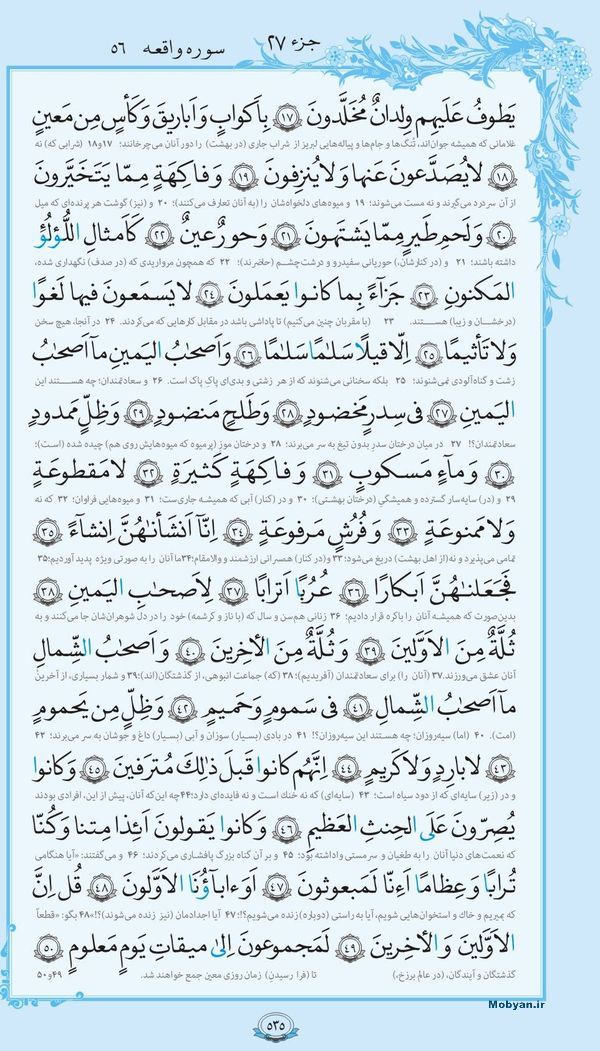 جزء ۲۷
سوره واقعه ۵۶
يَطوفُ عَلَيهِم وِلدانٌ مُخَلَّدونَ ١٧ بِأَكوابٍ وَأَباريقَ وَكَأسٍ مِن مَعينٍ
غلامانی که همیشه جوان‌اند، تنگ‌ها و جام‌ها و پیاله‌هایی لبریز از شراب جاری (در بهشت) را دور آنان می‌چرخانند؛ ۱۷و۱۸ شرابی (که) نه
١٨ لايُصَدَّعونَ عَنها وَلايُنزِفونَ ١٩ وَفاكِهَةٍ مِمّا يَتَخَيَّرونَ
از آن سردرد می‌گیرند و نه مست می‌شوند؛ ۱۹ و میوه‌های دلخواه‌شان (را به آنان تعارف می‌کنند)؛ ۲۰ و (نیز) گوشت هر پرنده‌ای که میل
٢٠ وَلَحمِ طَيرٍ مِمّا يَشتَهونَ ٢١ وَحورٌ عينٌ ٢٢ كَأَمثالِ اللُّؤلُؤِ
داشته باشند؛ ۲۱ و (در کنارشان،) حوریانی سفیدرو و درشت‌چشم (حاضرند)؛ ۲۲ که همچون مرواریدی که (در صدف) نگهداری شده،
المَكنونِ ٢٣ جَزاءً بِما كانوا يَعمَلونَ ٢٤ لايَسمَعونَ فيها لَغوًا
(درخشان و زیبا) هستند. ۲۳ (با مقربان چنین می‌کنیم) تا پاداشی باشد در مقابل کارهایی که می‌کردند. ۲۴ در آنجا، هیچ سخن
وَلاتَأثيمًا ٢٥ إِلّا قيلًا سَلٰمًا سَلٰمًا ٢٦ وَأَصحٰبُ اليَمينِ ما أَصحٰبُ
زشت و گناه‌آلودی نمی‌شنوند؛ ۲۵ بلکه سخنانی می‌شنوند که از هر زشتی و بدی‌ای پاکِ پاک است. ۲۶ و سعادتمندان؛ چه هستند این
اليَمينِ ٢٧ في سِدرٍ مَخضودٍ ٢٨ وَطَلحٍ مَنضودٍ ٢٩ وَظِلٍّ مَمدودٍ
سعادتمندان؟! ۲۷ در میان درختان سدرِ بدون تیغ به سر می‌برند؛ ۲۸ و درختان موزِ (پرمیوه که میوه‌هایش روی هم) چیده شده (است)؛
٣٠ وَماءٍ مَسكوبٍ ٣١ وَفاكِهَةٍ كَثيرَةٍ ٣٢ لامَقطوعَةٍ
۲۹ و (در) سایه‌سار گسترده و همیشگیِ (درختان بهشتی)؛ ۳۰ و (در کنار) آبی که همیشه جاری‌ست؛ ۳۱ و میوه‌هایی فراوان؛ ۳۲ که نه
وَلامَمنوعَةٍ ٣٣ وَفُرُشٍ مَرفوعَةٍ ٣٤ إِنّا أَنشَأنٰهُنَّ إِنشاءً ٣٥
تمامی می‌پذیرد و نه (از اهل بهشت) دریغ می‌شود؛ ۳۳ و (در کنار) همسرانی ارزشمند و والامقام؛ ۳۴ ما آنان را به صورتی ویژه پدید آوردیم؛ ۳۵
فَجَعَلنٰهُنَّ أَبكارًا ٣٦ عُرُبًا أَترابًا ٣٧ لِأَصحٰبِ اليَمينِ ٣٨
بدین‌صورت که همیشه آنان را باکره قرار دادیم؛ ۳۶ زنانی هم‌سن و سال که (با ناز و کرشمه) خود را در دل شوهران‌شان جا می‌کنند و به
ثُلَّةٌ مِنَ الأَوَّلينَ ٣٩ وَثُلَّةٌ مِنَ الأٰخِرينَ ٤٠ وَأَصحٰبُ الشِّمالِ
آنان عشق می‌ورزند. ۳۷ (آنان را) برای سعادتمندان (آفریدیم)؛ ۳۸ (که) جماعت انبوهی، از گذشتگان (اند)؛ ۳۹ و شمار بسیاری، از آخرین
ما أَصحٰبُ الشِّمالِ ٤١ في سَمومٍ وَحَميمٍ ٤٢ وَظِلٍّ مِن يَحمومٍ
امت). ۴۰ (اما) سیه‌روزان؛ چه هستند این سیه‌روزان؟! ۴۱ در بادی (بسیار) سوزان و آبی (بسیار) داغ و جوشان به سر می‌برند؛ ۴۲
٤٣ لابارِدٍ وَلاكَريمٍ ٤٤ إِنَّهُم كانوا قَبلَ ذٰلِكَ مُترَفينَ ٤٥ وَكانوا
و در (زیر) سایه‌ای که از دود سیاه است؛ ۴۳ (سایه‌ای) که نه خنک است و نه فایده‌ای دارد؛ ۴۴ چه این‌که آنان، پیش از این، افرادی بودند
يُصِرّونَ عَلَى الحِنثِ العَظيمِ ٤٦ وَكانوا يَقولونَ أَئِذا مِتنا وَكُنّا
که نعمت‌های دنیا آنان را به طغیان و سرمستی واداشته بود؛ ۴۵ و بر آن گناه بزرگ پافشاری می‌کردند؛ ۴۶ و می‌گفتند: «آیا هنگامی
تُرابًا وَعِظامًا أَءِنّا لَمَبعوثونَ ٤٧ أَوَءاباؤُنَا الأَوَّلونَ ٤٨ قُل إِنَّ
که بمیریم و خاک و استخوان‌هایی شویم، آیا به راستی (دوباره) زنده می‌شویم؟! ۴۷ آیا اجدادمان (نیز زنده می‌شوند)؟!» ۴۸ بگو: «قطعاً
الأَوَّلينَ وَالأٰخِرينَ ٤٩ لَمَجموعونَ إِلىٰ ميقاتِ يَومٍ مَعلومٍ ٥٠
گذشتگان و آیندگان، (در عالم برزخ،) تا (فرا رسیدنِ) زمان روزی معین جمع خواهند شد. ۴۹و۵۰
۵۳۵
Mobyan.ir